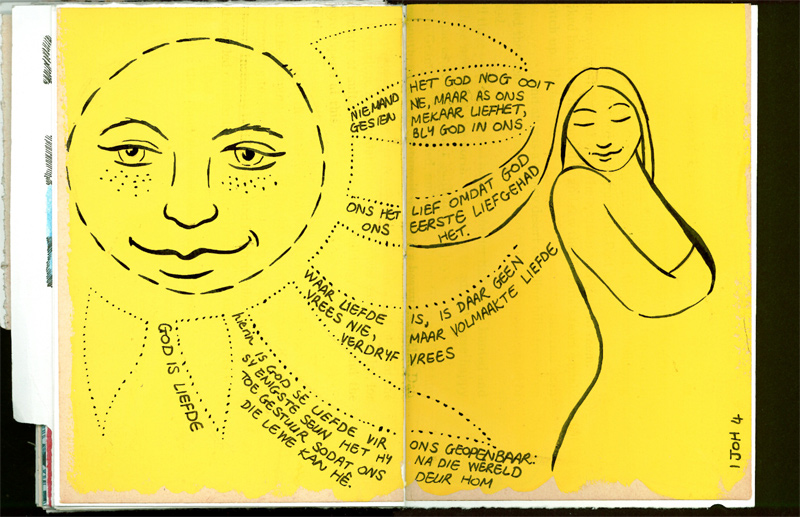 NIEMAND HET GOD NOG OOIT
GESIEN NIE, MAAR AS ONS
MEKAAR LIEFHET,
BLY GOD IN ONS.
ONS HET LIEF OMDAT GOD
ONS EERSTE LIEFGEHAD
HET.
WAAR LIEFDE IS, IS DAAR GEEN
VREES NIE, MAAR VOLMAAKTE LIEFDE
VERDRYF VREES
GOD IS LIEFDE
hierin IS GOD SE LIEFDE VIR ONS GEOPENBAAR:
SY ENIGSTE SEUN HET HY NA DIE WERELD
TOE GESTUUR SODAT ONS DEUR HOM
DIE LEWE KAN HÊ.
1 JOH 4